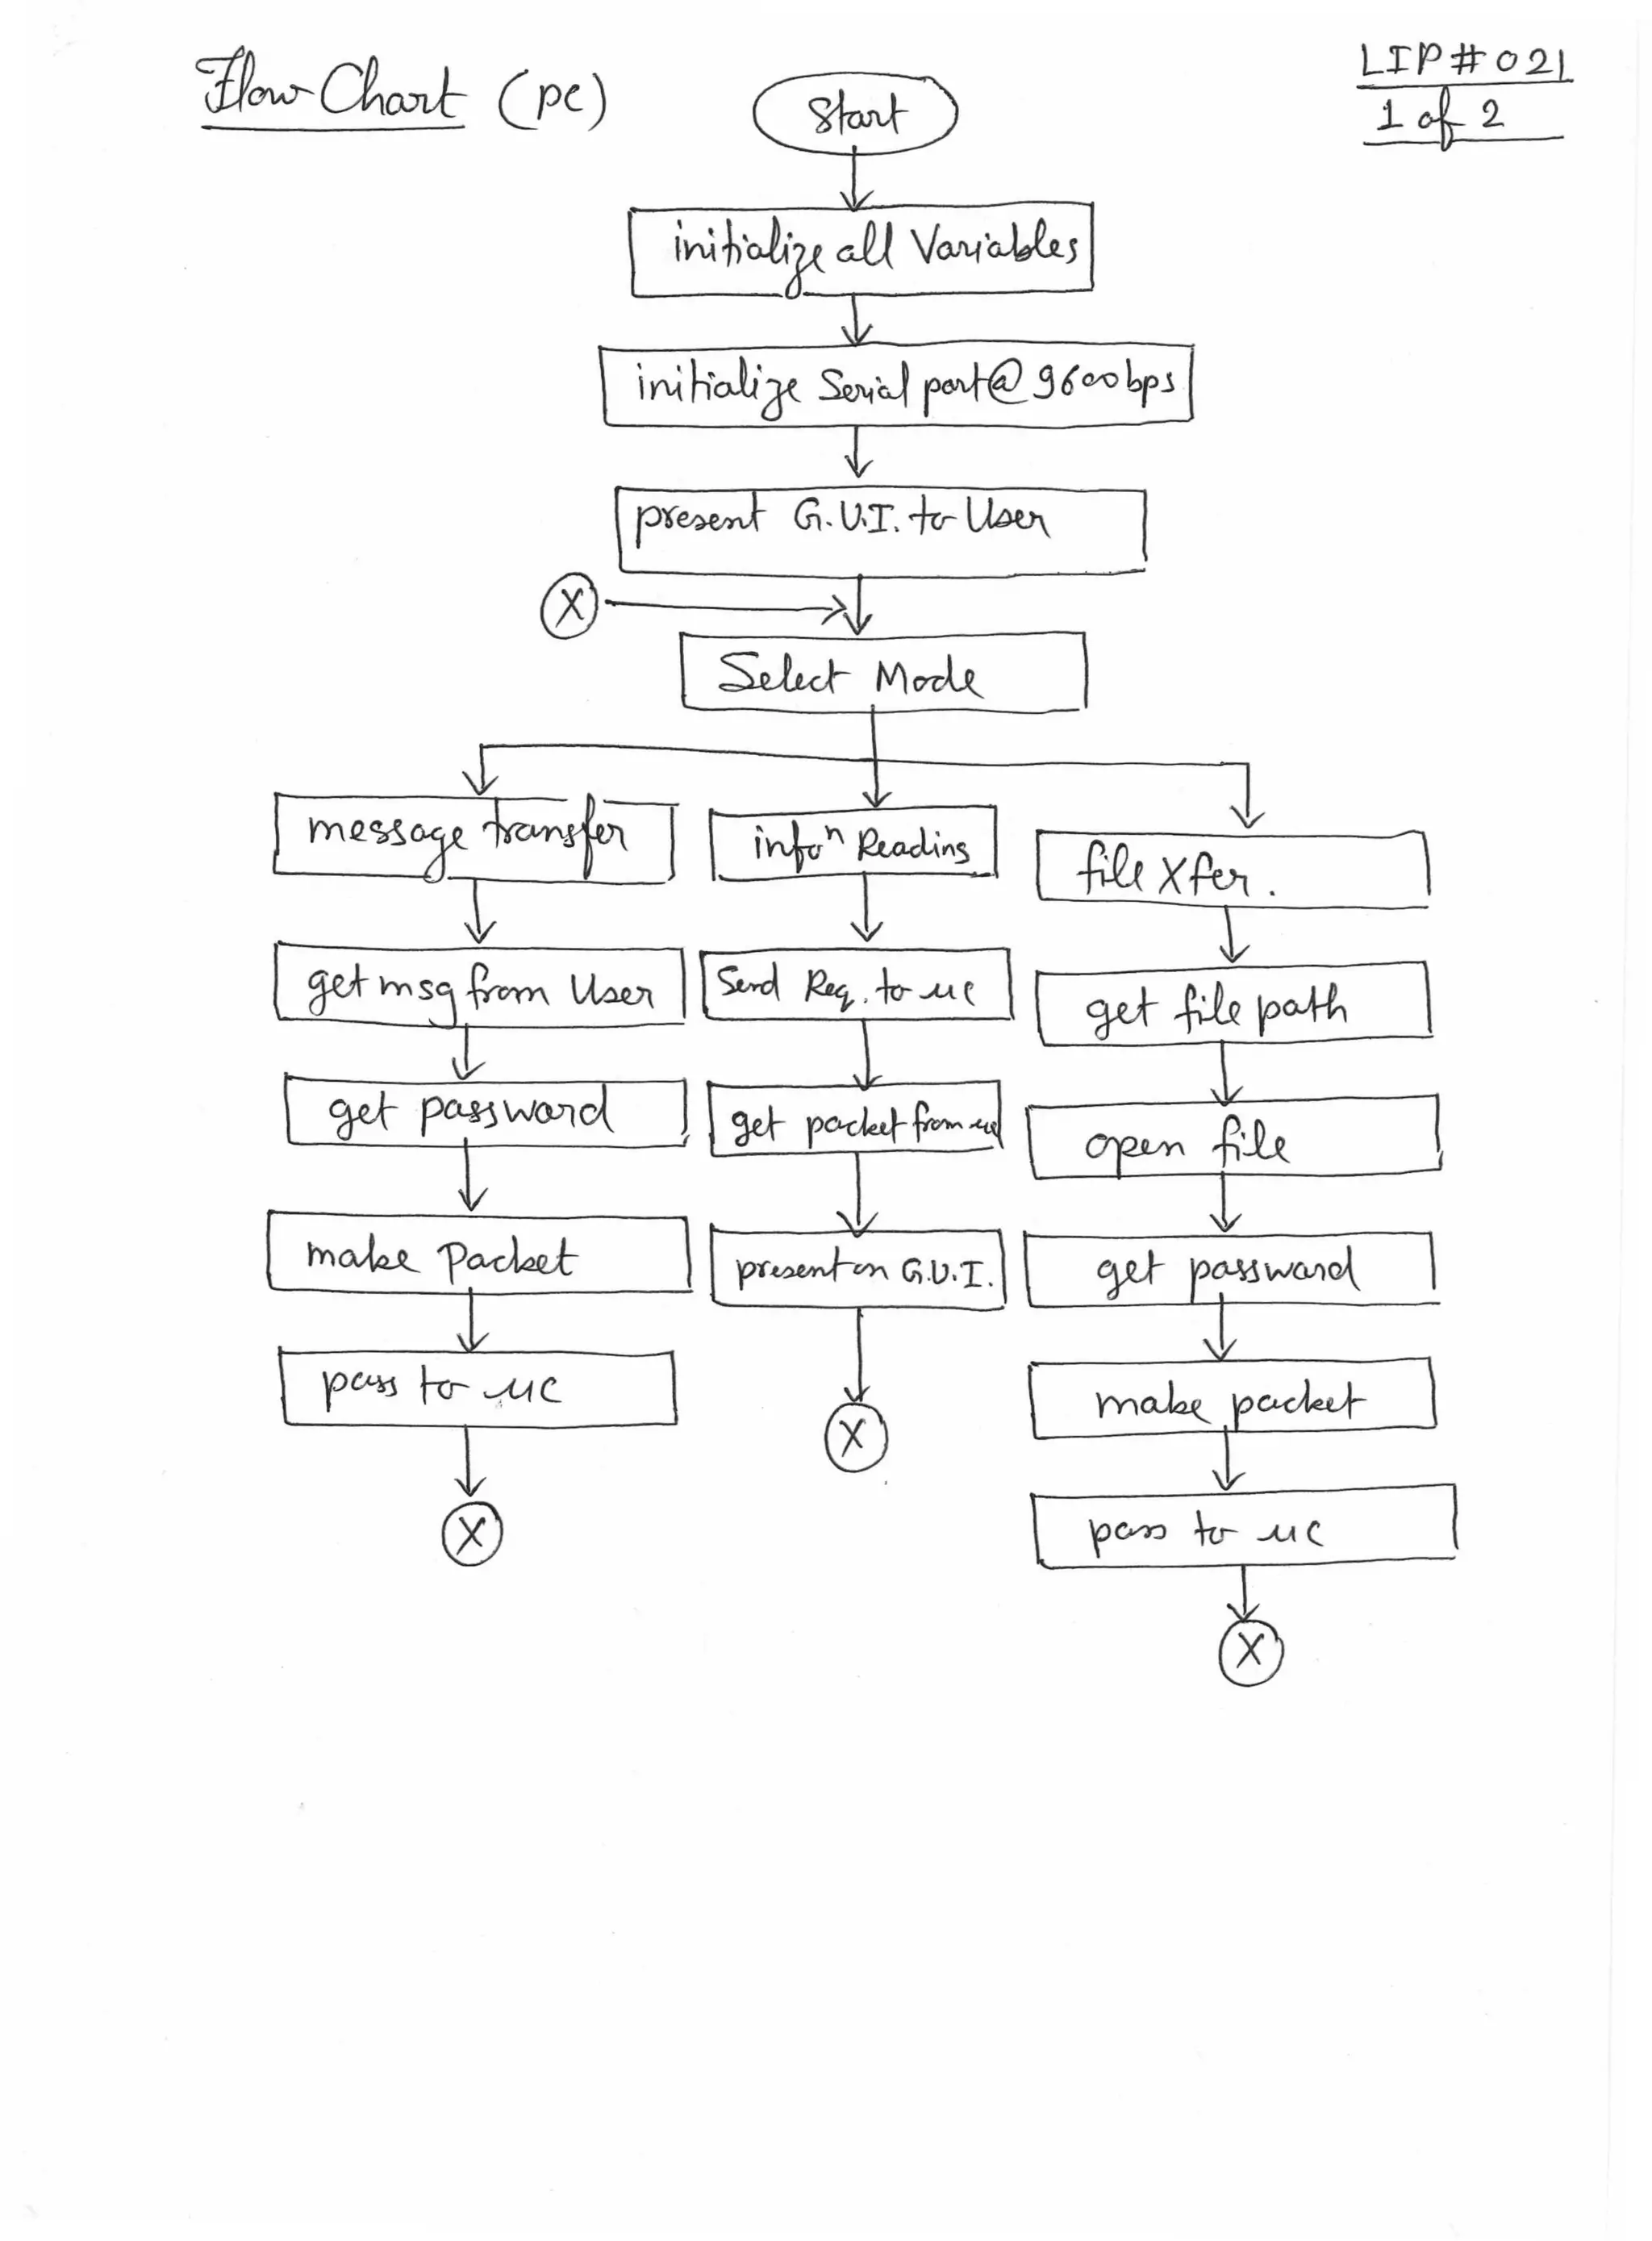 Flow Chart (PC)
LIP # 021
1 of 2
Start
initialize all Variables
initialize Serial port @ 9600 bps
present G.U.I. to User
X
Select Mode
message transfer
get msg from User
get password
make Packet
pass to uc
X
infoⁿ Reading
Send Req. to uc
get packet from uc
present on G.U.I.
X
file Xfer.
get file path
open file
get password
make packet
pass to uc
X